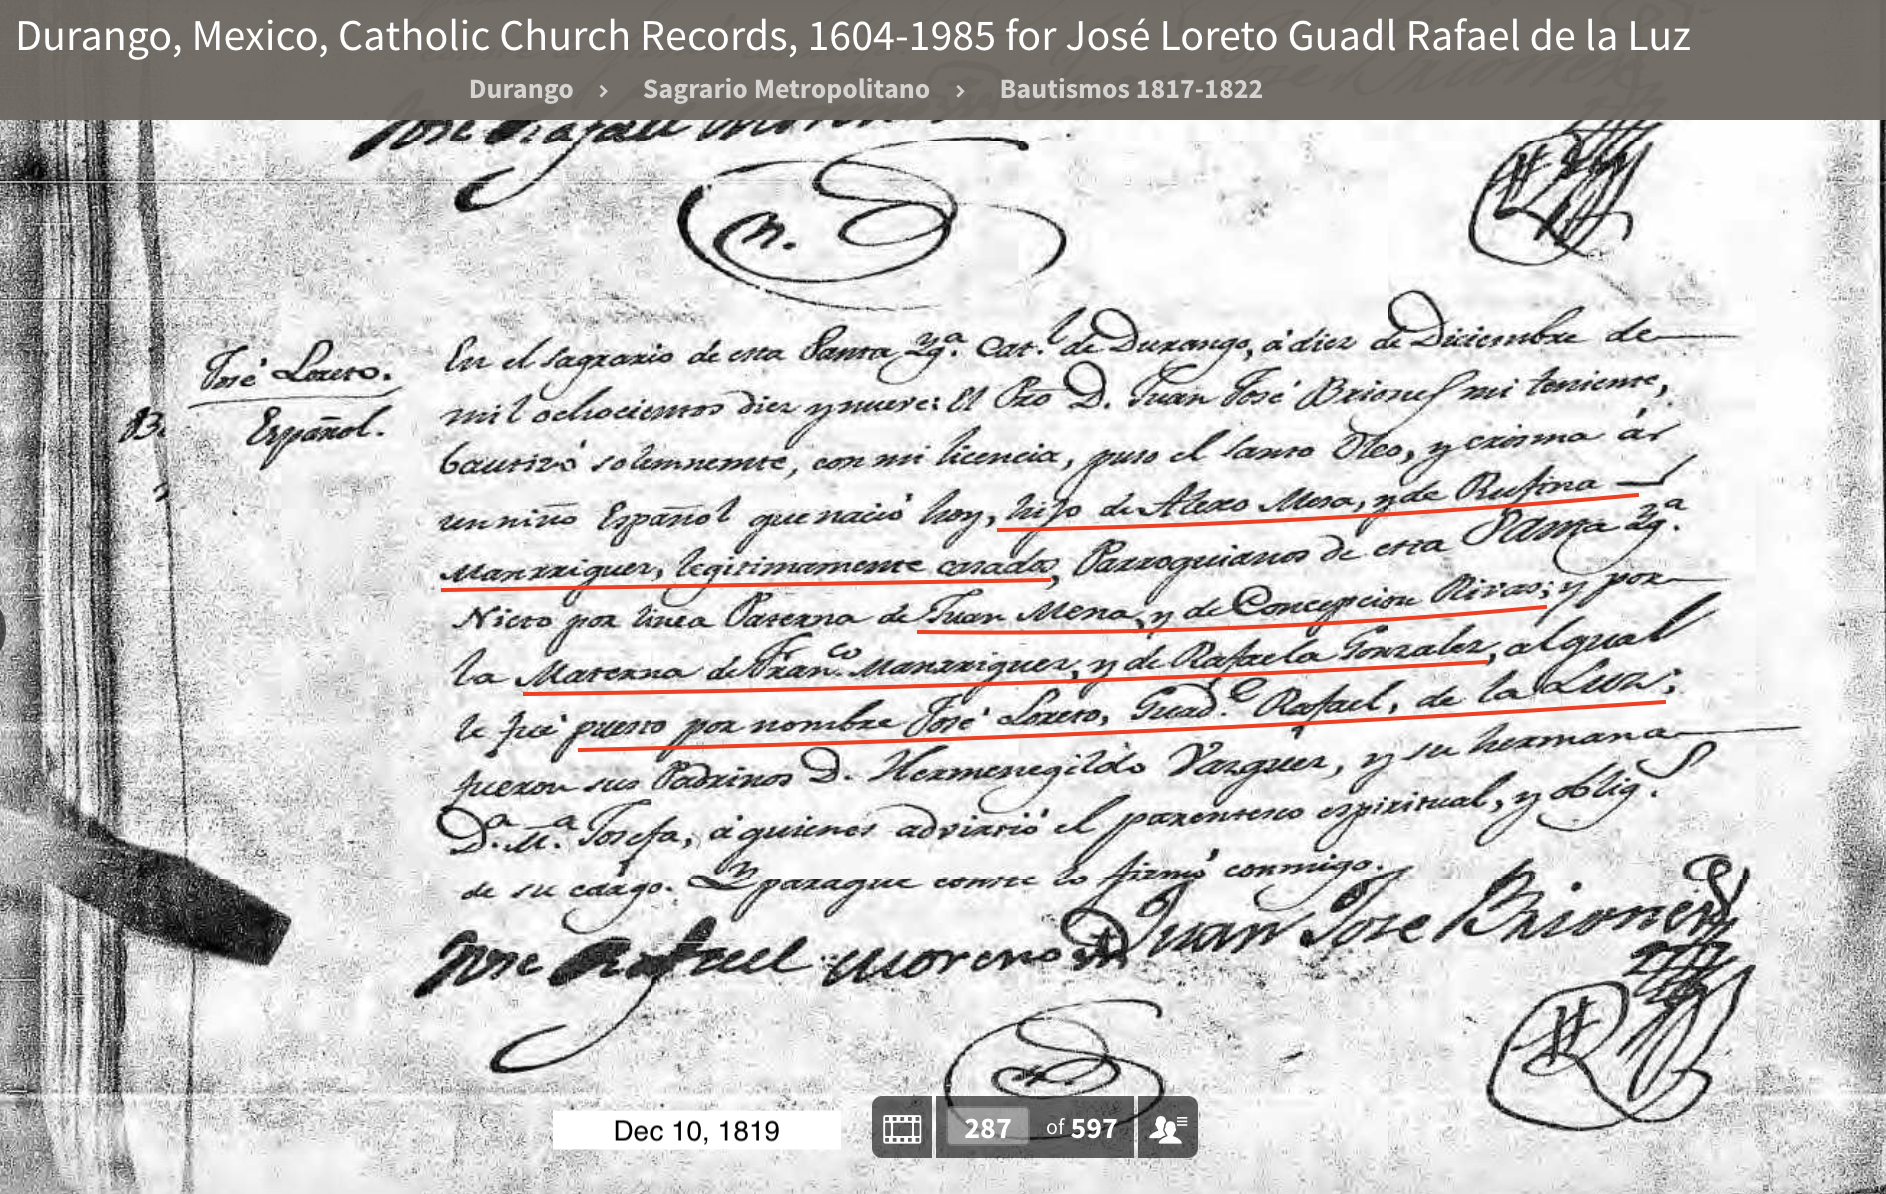 Durango, Mexico, Catholic Church Records, 1604-1985 for José Loreto Guadl Rafael de la Luz
Durango › Sagrario Metropolitano › Bautismos 1817-1822
José Rafael Moreno
José Loreto.
Español.
En el Sagrario de esta Santa Yg.ª Cat.l de Durango, á diez de Diciembre de
mil ochocientos diez y nueve: El Pro D. Juan José Briones mi teniente,
bautizó solemnemte, con mi licencia, puso el Santo Oleo, y crisma á
un niño Español que nació hoy, hijo de Alexo Mena, y de Rufina
Manrriquez, legitimamente casados, Parroquianos de esta Santa Yg.ª
Nieto por linea Paterna de Juan Mena, y de Concepcion Rivas; y por
la Materna de Fran.co Manrriquez, y de Rafaela Gonzalez, al qual
le fué puesto por nombre José Loreto, Guad.e Rafael, de la Luz;
fueron sus Padrinos D. Hermenegildo Vazquez, y su hermana
D.ª M.ª Josefa, á quienes advirtió el parentesco espiritual, y oblig.s
de su cargo. Y para que conste lo firmó conmigo.
José Rafael Moreno Juan José Briones
Dec 10, 1819
287 of 597